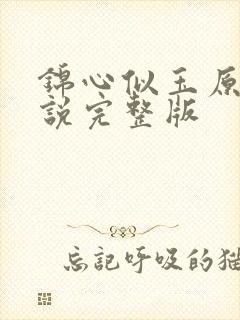 錦心似玉原
說完整版
忘記呼吸的猫